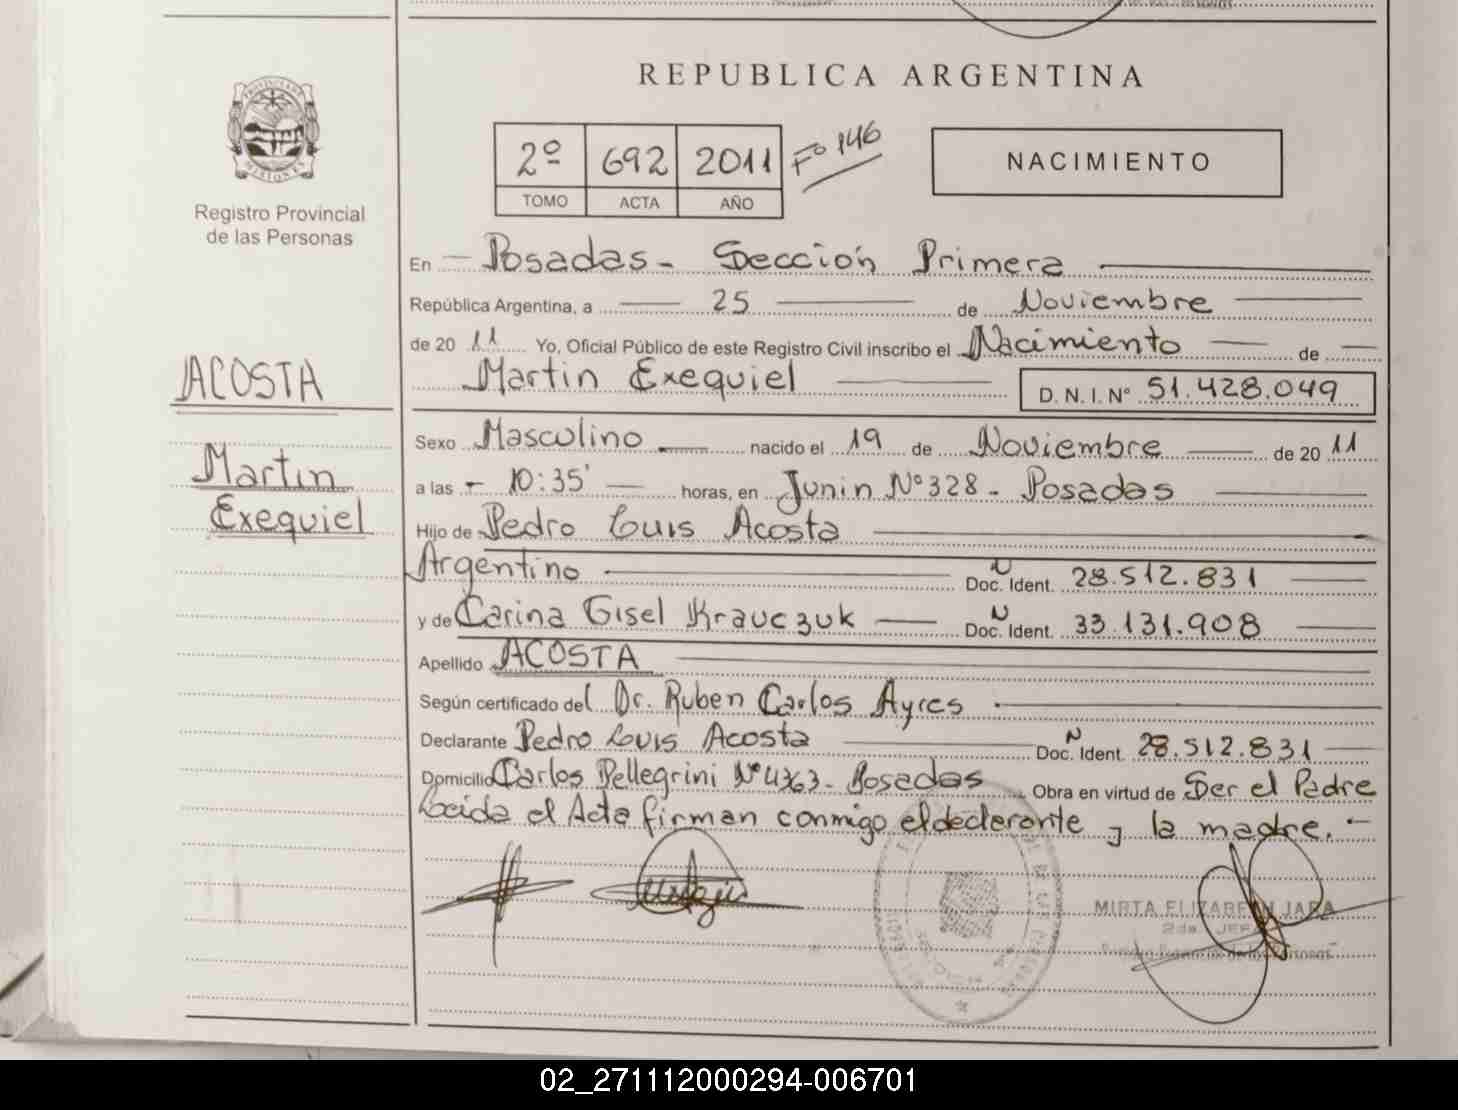 REPUBLICA ARGENTINA
PROVINCIA DE
MISIONES
Registro Provincial
de las Personas
2º 692 2011 Fº 146
TOMO ACTA AÑO
NACIMIENTO
En Posadas - Sección Primera
República Argentina, a 25 de Noviembre
de 20 11 Yo, Oficial Público de este Registro Civil inscribo el Nacimiento de
Martin Exequiel D. N. I. Nº 51.428.049
ACOSTA
Martin
Exequiel
Sexo Masculino nacido el 19 de Noviembre de 20 11
a las 10:35' horas, en Junin Nº 328 - Posadas
Hijo de Pedro Luis Acosta
Argentino N Doc. Ident. 28.512.831
y de Carina Gisel Krauczuk N Doc. Ident. 33.131.908
Apellido ACOSTA
Según certificado del Dr. Ruben Carlos Ayres
Declarante Pedro Luis Acosta N Doc. Ident. 28.512.831
Domicilio Carlos Pellegrini Nº 4363 - Posadas Obra en virtud de Ser el Padre
Leida el Acta firman conmigo el declarante y la madre. -
MIRTA ELIZABETH JARA
2da. JEFA
02_271112000294-006701